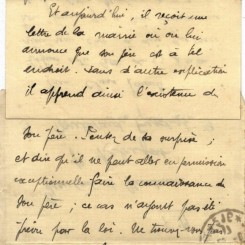 Et aujourd'hui, il reçoit une
lettre de la mairie où on lui
annonce que son père est à tel
endroit. Sans d'autre explication
il apprend ainsi l'existence de
son père. Pensez de sa surprise ;
et dire qu'il ne peut aller en permission
exceptionnelle faire la connaissance de
son père ; ce cas n'ayant pas été
prévu par la loi. Ne trouvez-vous pas